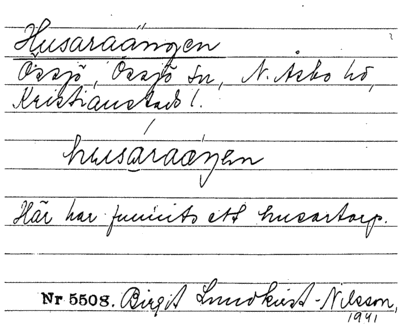 Husaraängen
Össjö, Össjö sn, N. Åsbo hd,
Kristianstads l.
husaraängen
Här har funnits ett husartorp.
Nr 5508. Birgit Lundkvist-Nilsson,
1941